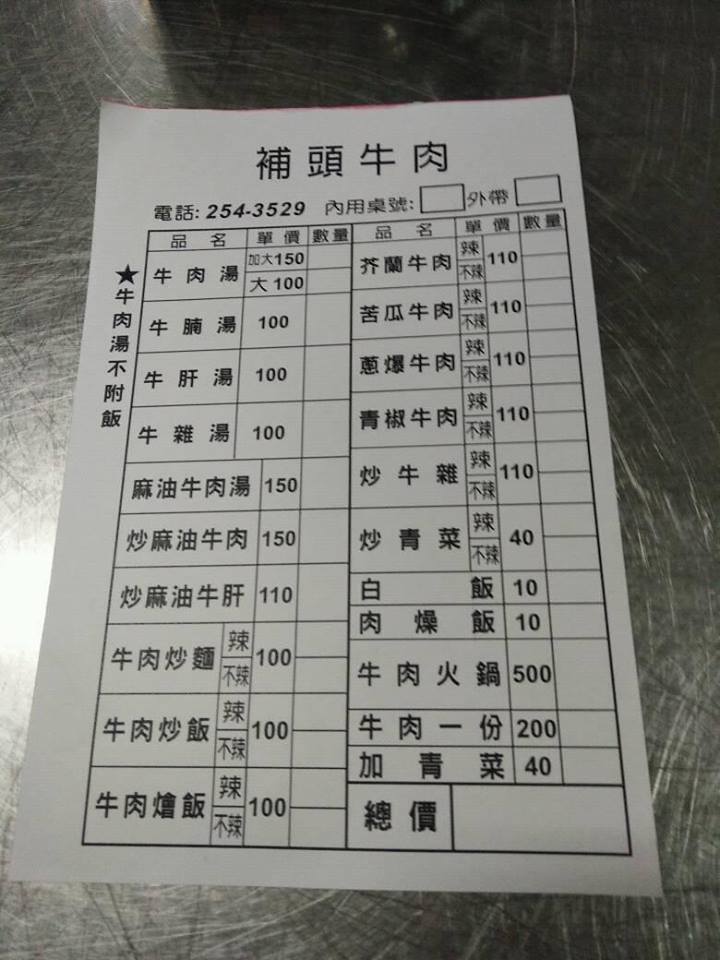 補頭牛肉
電話: 254-3529 內用桌號: 外帶
★牛肉湯不附飯
品名 單價 數量
牛肉湯 加大150
大100
牛腩湯 100
牛肝湯 100
牛雜湯 100
麻油牛肉湯 150
炒麻油牛肉 150
炒麻油牛肝 110
牛肉炒麵 辣 不辣 100
牛肉炒飯 辣 不辣 100
牛肉燴飯 辣 不辣 100
品名 單價 數量
芥蘭牛肉 辣 不辣 110
苦瓜牛肉 辣 不辣 110
蔥爆牛肉 辣 不辣 110
青椒牛肉 辣 不辣 110
炒牛雜 辣 不辣 110
炒青菜 辣 不辣 40
白飯 10
肉燥飯 10
牛肉火鍋 500
牛肉一份 200
加青菜 40
總價